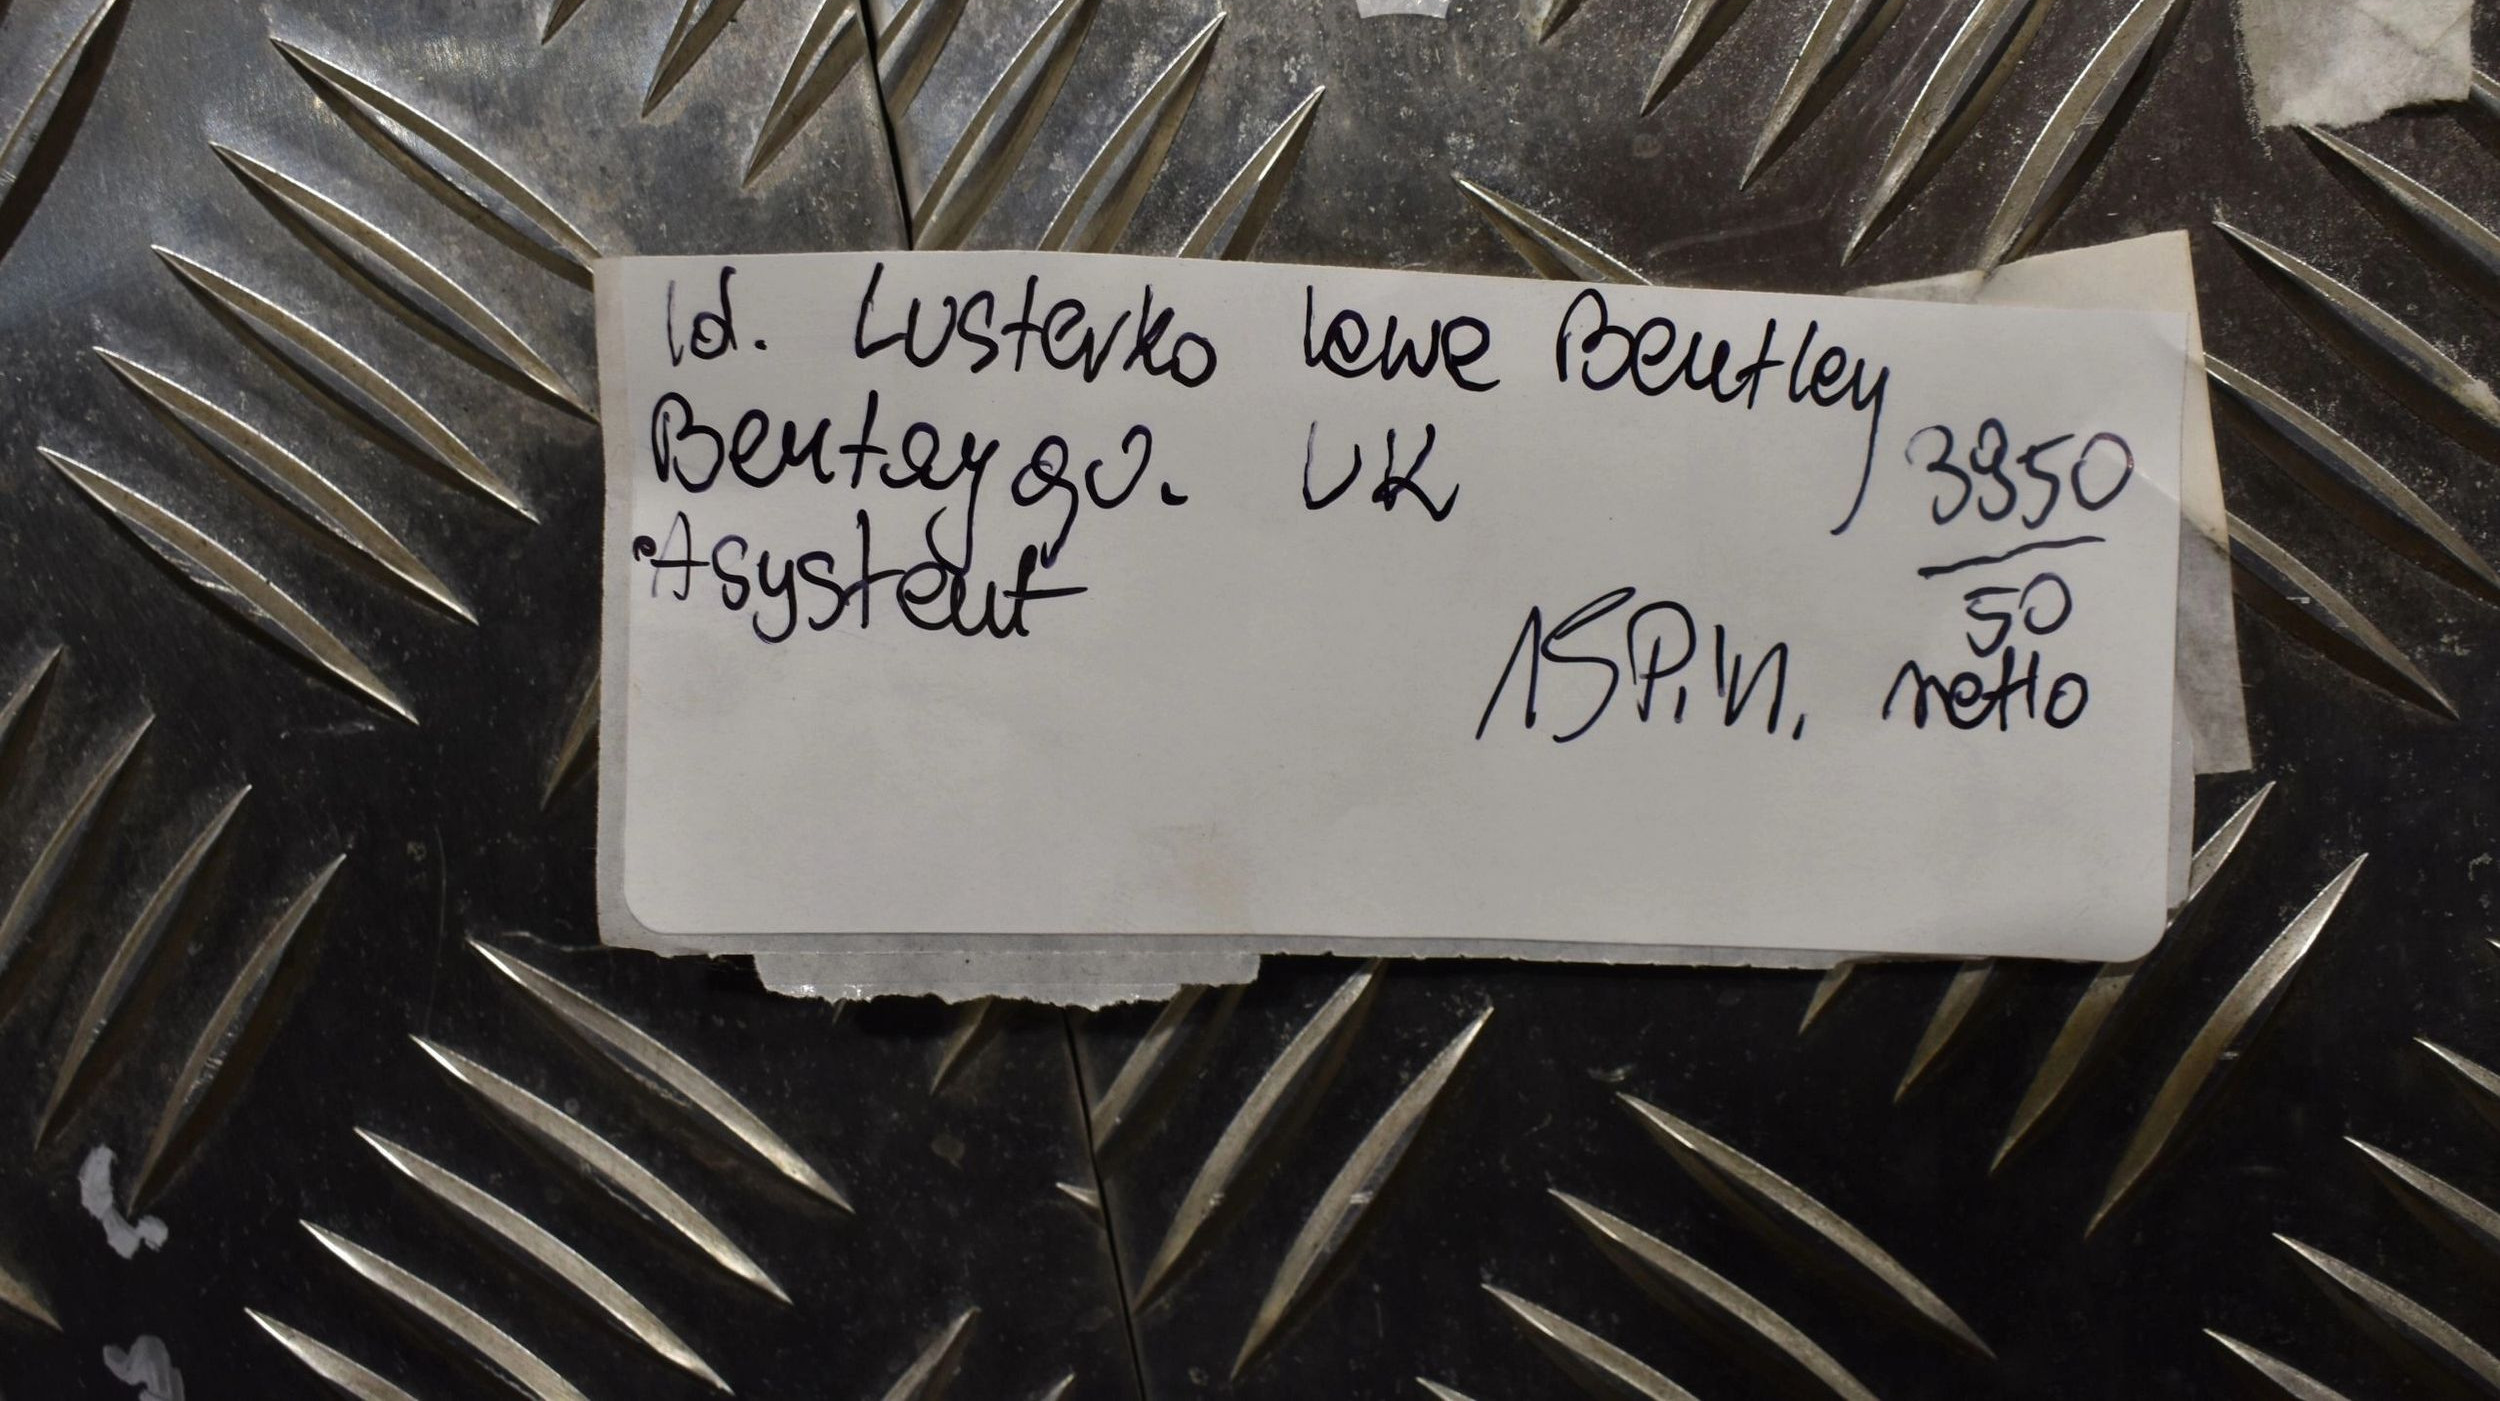 Id. Lusterko lewe Bentley
Bentayga. UK
Asystent
3950
50
netto
15P.in.